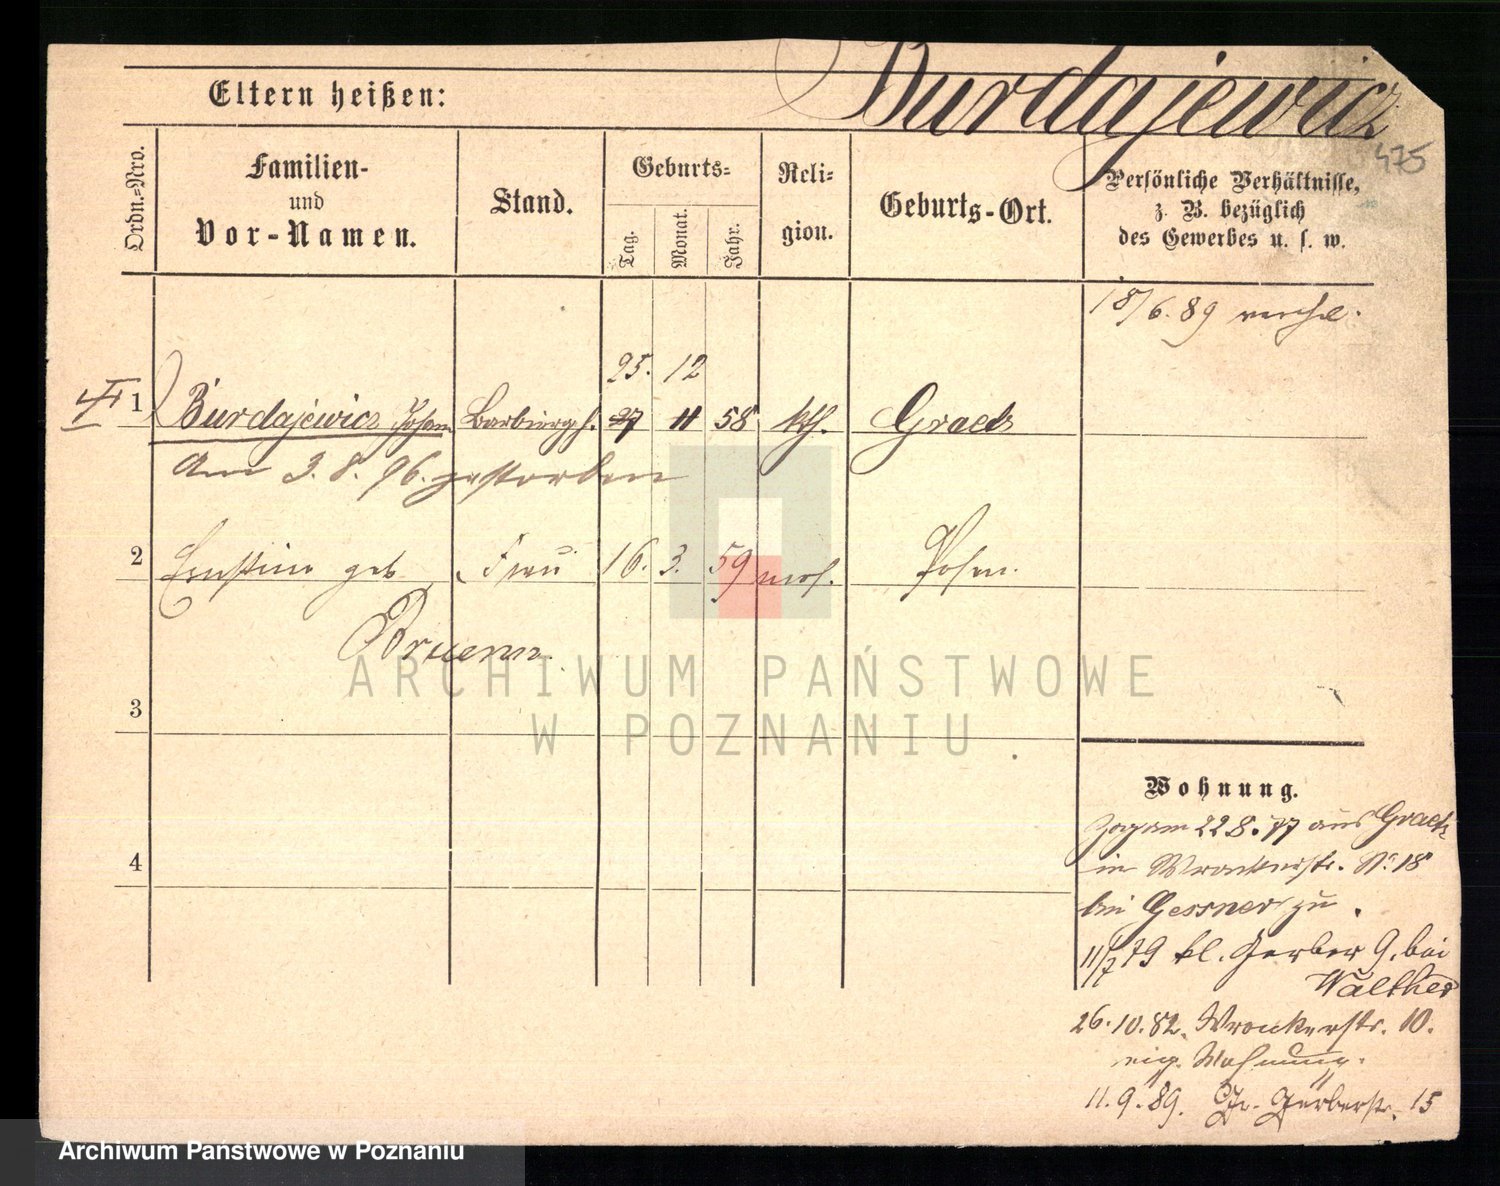 Burdajewicz
Eltern heißen:
475
Ordn.=Nro.
Familien-
und
Vor-Namen.
Stand.
Geburts=
Tag.
Monat.
Jahr.
Reli=
gion.
Geburts-Ort.
Persönliche Verhältnisse,
z. B. bezüglich
des Gewerbes u. s. w.
18/6. 89 verehel.
25. 12
1 Burdajewicz Johann Barbiergeh. 27 11 58 kth. Graetz
Am 3. 8. 96. gestorben
2 Ernstine geb Frau 16. 3. 59 mos. Posen.
Bruenn.
3
4
ARCHIWUM PAŃSTWOWE
W POZNANIU
Wohnung.
Zog am 22 8. 77 aus Graetz
in Wronkerstr. No 18
bei Gessner zu.
11/7 79 kl. Gerber 9. bei
Walther
26. 10. 82. Wronkerstr. 10.
eig. Wohnung.
11. 9. 89. Gr. Gerberstr. 15
Archiwum Państwowe w Poznaniu